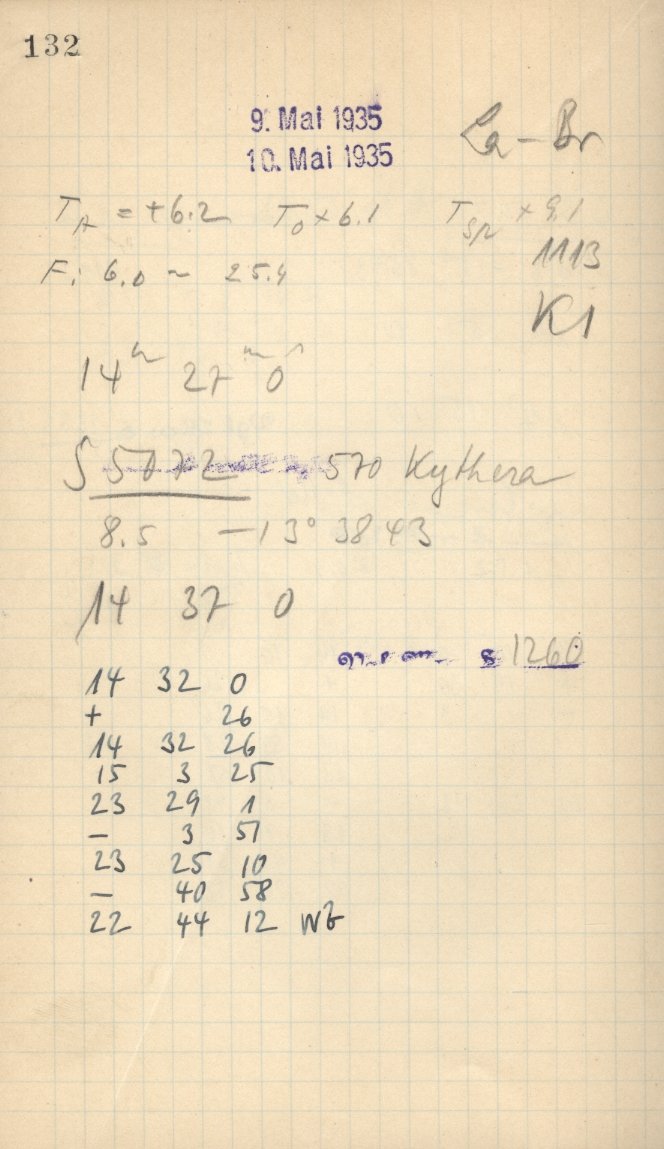 132
9. Mai 1935
10. Mai 1935
La - Br
T_A = +6.2 T_0 + 6.1 T_Sp + 9.1
1113
F: 6.0 ~ 25.4
K1
14h 27m 0s
S 5072 570 Kythera
8.5 - 13° 38 43
14 37 0
1260
14 32 0
+ 26
14 32 26
15 3 25
23 29 1
- 3 51
23 25 10
- 40 58
22 44 12